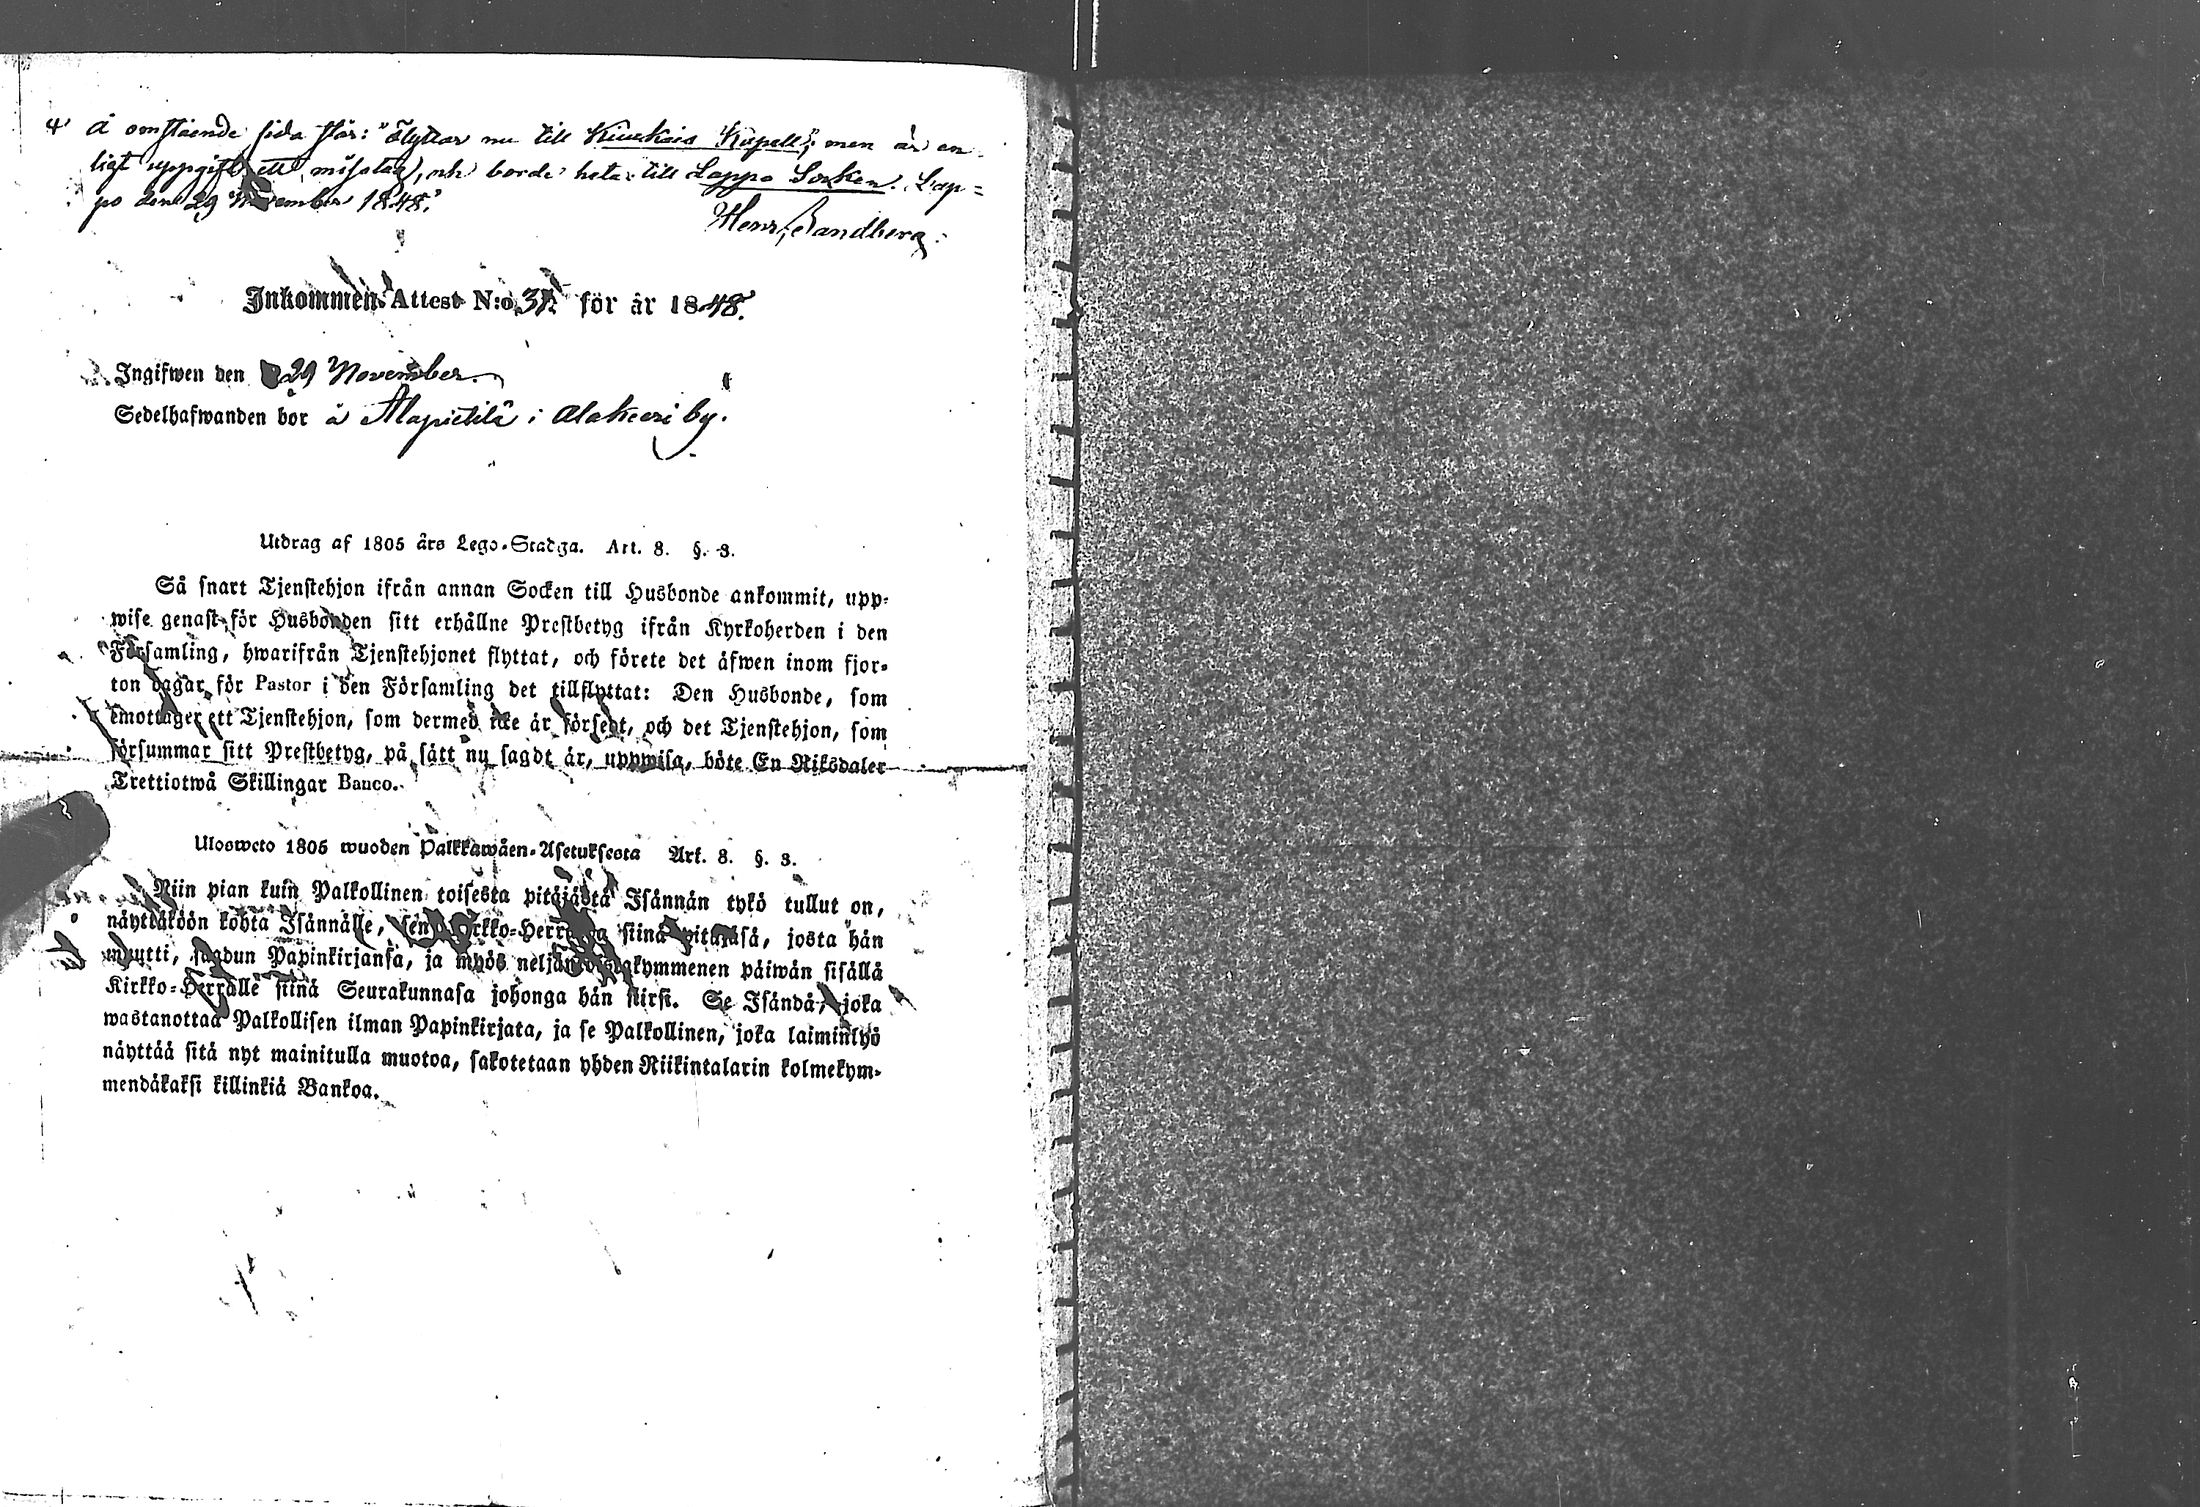 Å omstående sida står: "Flyttar nu till Kiukais Kapell", men är en-
ligt uppgift ett misstag, och borde heta: till Lappo Socken. Lap=
po den 29 November 1848.
Henr. Sandberg.
Inkommen Attest N:o 31. för år 1848.
Ingifwen den 29 November.
Sedelhafwanden bor å Alapietilä i Alakeeri by.
Utdrag af 1805 års Lego-Stadga. Art. 8. §. 3.
Så snart Tjenstehjon ifrån annan Socken till Husbonde ankommit, upp-
wise genast för Husbonden sitt erhållne Prestbetyg ifrån Kyrkoherden i den
Församling, hwarifrån Tjenstehjonet flyttat, och förete det äfwen inom fjor-
ton dagar för Pastor i den Församling det tillflyttat: Den Husbonde, som
emottager ett Tjenstehjon, som dermed icke är försedt, och det Tjenstehjon, som
försummar sitt Prestbetyg, på sätt nu sagdt är, uppwisa, böte En Riksdaler
Trettiotwå Skillingar Banco.
Ulosweto 1805 wuoden Palkkawäen-Asetuksesta Art. 8. §. 3.
Niin pian kuin Palkollinen toisesta pitäjästä Isännän tykö tullut on,
näyttäköön kohta Isännälle, sen Kirkko-Herralta siinä pitäjäsä, josta hän
muutti, saadun Papinkirjansa, ja myös neljäntoistakymmenen päiwän sisällä
Kirkko-Herralle siinä Seurakunnasa johonga hän siirsi. Se Isändä, joka
wastanottaa Palkollisen ilman Papinkirjata, ja se Palkollinen, joka laiminlyö
näyttää sitä nyt mainitulla muotoa, sakotetaan yhden Riikintalarin kolmekym-
mendäkaksi killinkiä Bankoa.